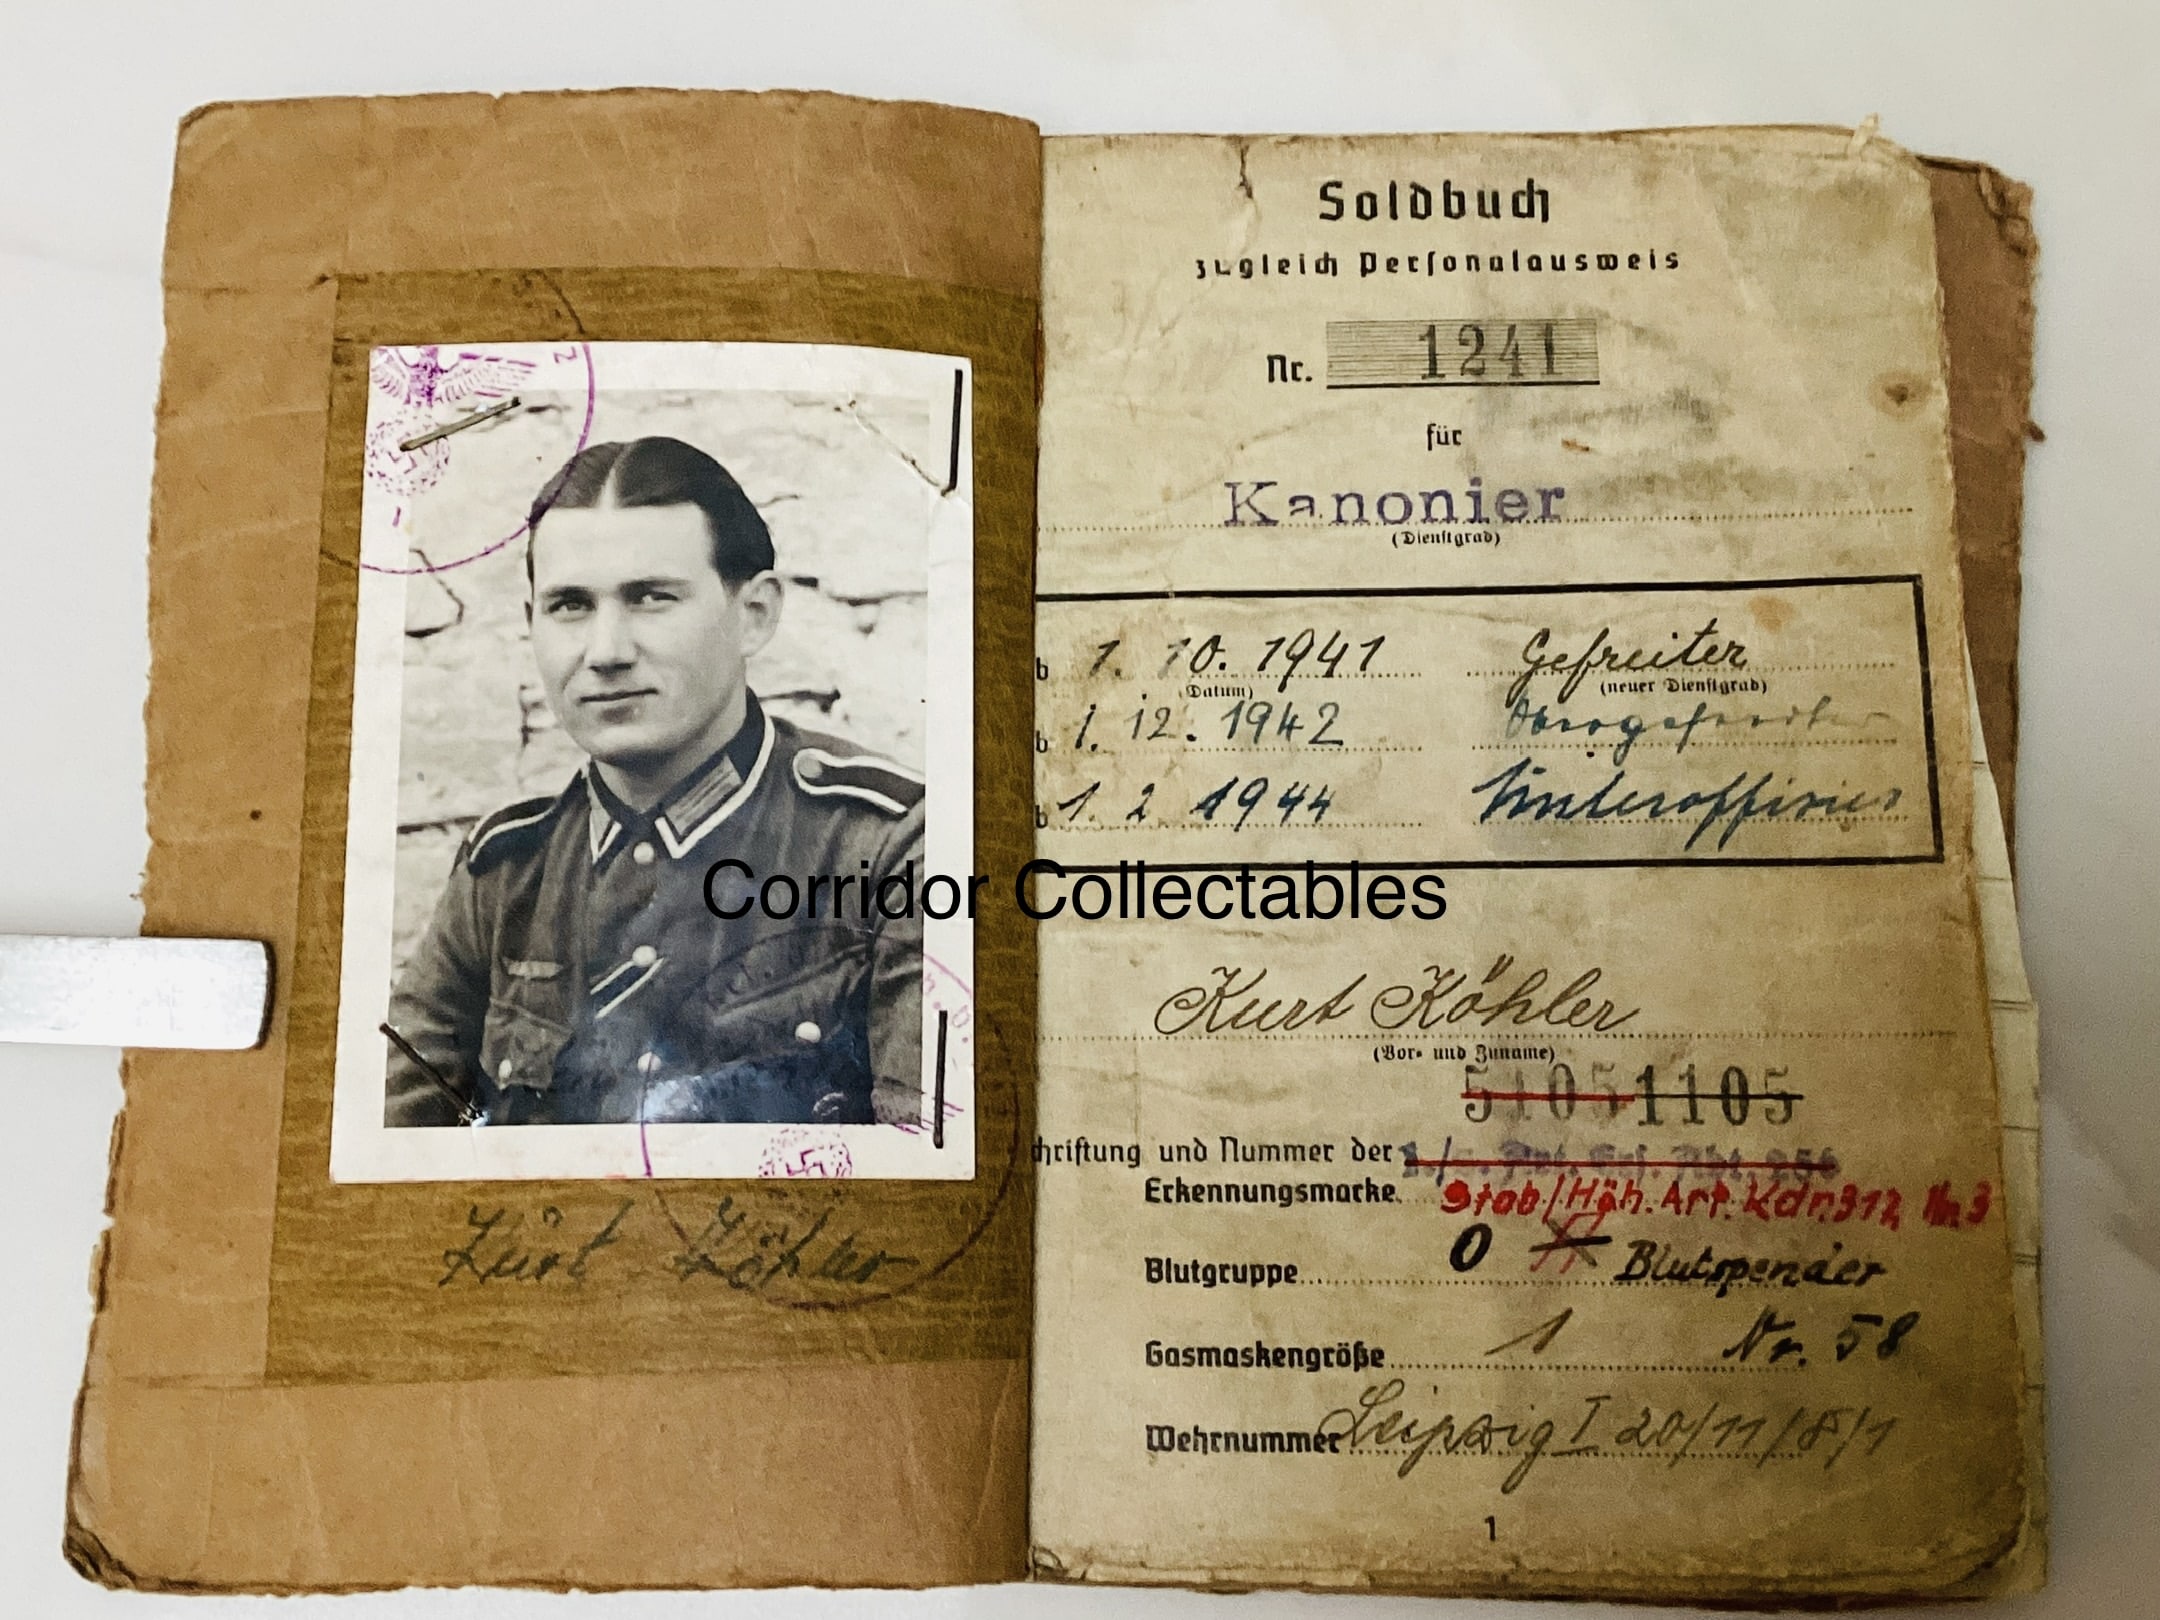 Soldbuch
zugleich Personalausweis
Nr. 1241
für
Kanonier
(Dienstgrad)
b 1. 10. 1941 Gefreiter
(Datum) (neuer Dienstgrad)
b 1. 12. 1942 Obergefreiter
b 1. 2 1944 Unteroffizier
Corridor Collectables
Kurt Köhler
(Vor- und Zuname)
51051105
chriftung und Nummer der
Erkennungsmarke Stab/Höh. Art. Kdr. 312 Nr. 3
Blutgruppe O Blutspender
Gasmaskengröße 1 Nr. 58
Wehrnummer Leipzig I 20/11/8/1
1
Kurt Köhler